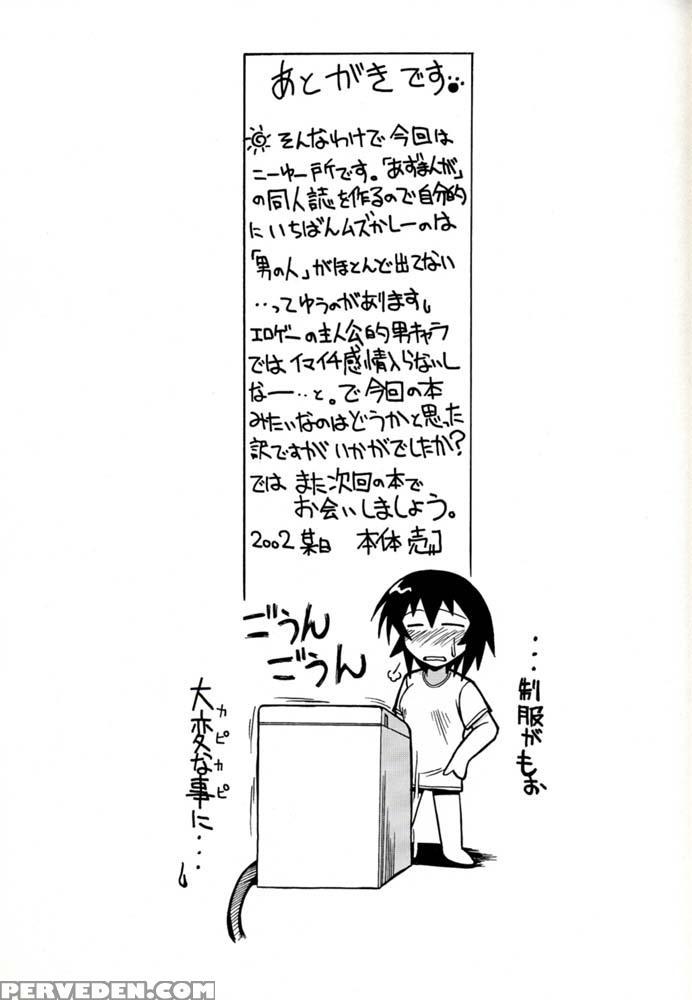 あとがきです
そんなわけで今回は
ニーゆー所です。「あずまんが」
の同人誌を作るので自分的
にいちばんムズかしーのは
「男の人」がほとんど出てない
‥ってゆうのがあります。
エロゲーの主人公的男キャラ
ではイマイチ感情入らないし
なー‥と。で今回の本
みたいなのはどうかと思った
訳ですがいかがでしたか?
では また次回の本で
お会いしましょう。
2002 某日 本体 売
ごうん
ごうん
・・・制服がもぉ
カピカピ
大変な事に・・・
PERVEDEN.COM